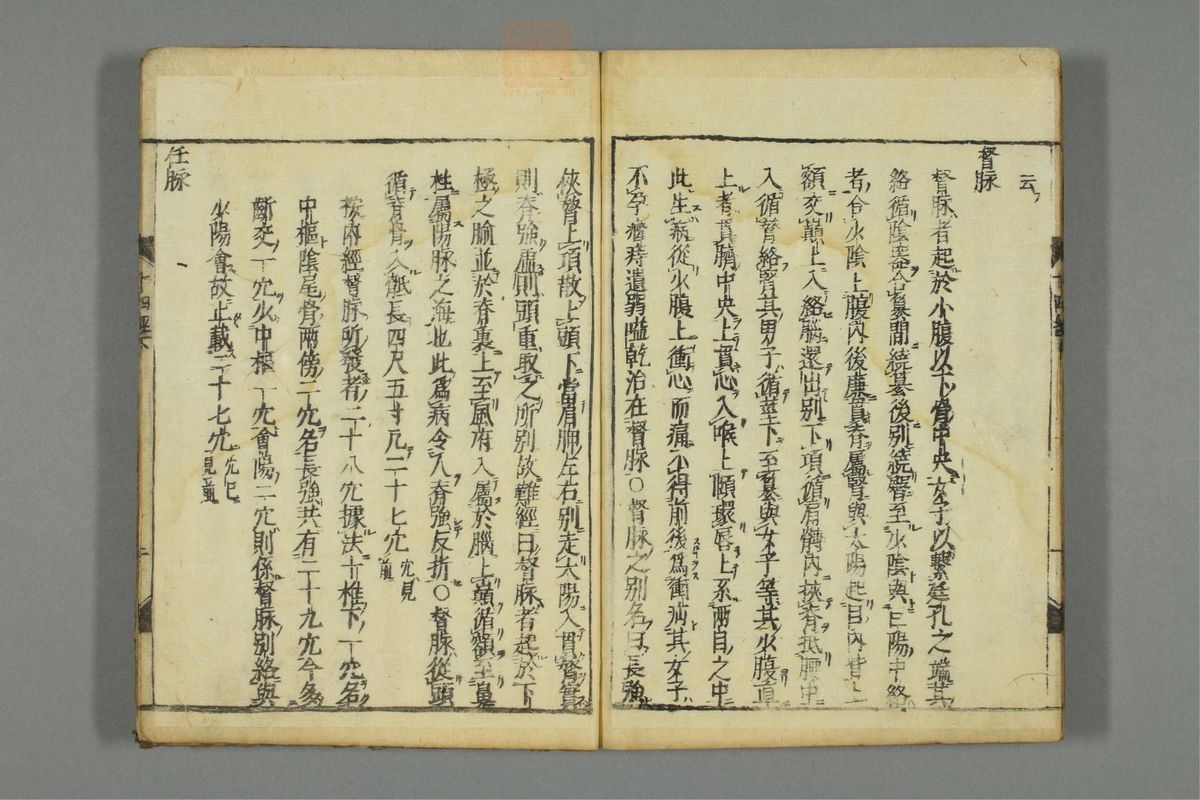 云
督脉
督脉者起於小腹以下骨中央女子以繫廷孔之端其
絡循陰器合纂間繞纂後別繞臀至少陰與巨陽中絡
者合少陰上腹內後廉貫脊屬腎與太陽起目內眥上
額交巔上入絡腦還出別下項循肩髆內挾脊抵腰中
入循膂絡腎其男子循莖下至纂與女子等其少腹直
上者貫臍中央上貫心入喉上頤環唇上系兩目之中
此生病從少腹上衝心而痛不得前後為衝疝其女子
不孕癃痔遺溺嗌乾治在督脉○督脉之別名曰長強
俠膂上項散上頭下當肩胛左右別走太陽入貫膂實
則脊強虛則頭重取之所別故難經曰督脉者起於下
極之腧並於脊裏上至風府入屬於腦上巔循額至鼻
柱屬陽脉之海也此為病令人脊強反折○督脉從頭
循脊骨入骶長四尺五寸凡二十七穴穴見前
按內經督脉所發者二十八穴據法十椎下一穴名
中樞陰尾骨兩傍二穴名長強共有二十九穴今多
齗交一穴少中樞一穴會陽二穴則係督脉別絡與
少陽會故止載二十七穴穴已見前
任脉